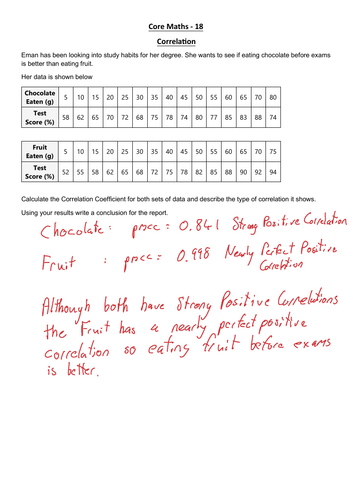 Core Maths - 18
Correlation
Eman has been looking into study habits for her degree. She wants to see if eating chocolate before exams
is better than eating fruit.
Her data is shown below
Chocolate Eaten (g) 5 10 15 20 25 30 35 40 45 50 55 60 65 70 80
Test Score (%) 58 62 65 70 72 68 75 78 74 80 77 85 83 88 74
Fruit Eaten (g) 5 10 15 20 25 30 35 40 45 50 55 60 65 70 75
Test Score (%) 52 55 58 62 65 68 72 75 78 82 85 88 90 92 94
Calculate the Correlation Coefficient for both sets of data and describe the type of correlation it shows.
Using your results write a conclusion for the report.
Chocolate : pmcc = 0.841 Strong Positive Correlation
Fruit : pmcc = 0.998 Nearly Perfect Positive
Correlation
Although both have Strong Positive Correlations
the Fruit has a nearly perfect positive
correlation so eating fruit before exams
is better.